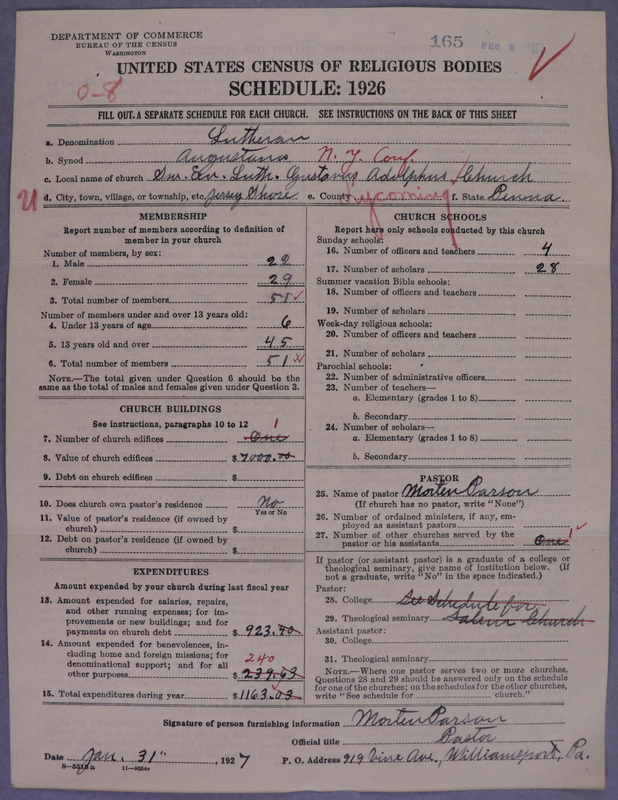 DEPARTMENT OF COMMERCE
BUREAU OF THE CENSUS
WASHINGTON
165 FEB
UNITED STATES CENSUS OF RELIGIOUS BODIES
SCHEDULE: 1926
0-8
FILL OUT A SEPARATE SCHEDULE FOR EACH CHURCH. SEE INSTRUCTIONS ON THE BACK OF THIS SHEET
a. Denomination Lutheran
b. Synod Augustana N. Y. Conf.
c. Local name of church Sw. Ev. Luth. Gustavus Adolphus Church
d. City, town, village, or township, etc. Jersey Shore e. County Lycoming f. State Penna.
MEMBERSHIP
Report number of members according to definition of
member in your church
Number of members, by sex:
1. Male 22
2. Female 29
3. Total number of members 51
Number of members under and over 13 years old:
4. Under 13 years of age 6
5. 13 years old and over 45
6. Total number of members 51
NOTE.—The total given under Question 6 should be the
same as the total of males and females given under Question 3.
CHURCH BUILDINGS
See instructions, paragraphs 10 to 12 1
7. Number of church edifices One
8. Value of church edifices $7000.00
9. Debt on church edifices $
10. Does church own pastor's residence No
Yes or No
11. Value of pastor's residence (if owned by
church) $
12. Debt on pastor's residence (if owned by
church) $
EXPENDITURES
Amount expended by your church during last fiscal year
13. Amount expended for salaries, repairs,
and other running expenses; for im-
provements or new buildings; and for
payments on church debt $923.40
14. Amount expended for benevolences, in-
cluding home and foreign missions; for
denominational support; and for all 240
other purposes $239.63
15. Total expenditures during year $1163.03
CHURCH SCHOOLS
Report here only schools conducted by this church
Sunday schools:
16. Number of officers and teachers 4
17. Number of scholars 28
Summer vacation Bible schools:
18. Number of officers and teachers
19. Number of scholars
Week-day religious schools:
20. Number of officers and teachers
21. Number of scholars
Parochial schools:
22. Number of administrative officers
23. Number of teachers—
a. Elementary (grades 1 to 8)
b. Secondary
24. Number of scholars—
a. Elementary (grades 1 to 8)
b. Secondary
PASTOR
25. Name of pastor Morten Parson
(If church has no pastor, write "None")
26. Number of ordained ministers, if any, em-
ployed as assistant pastors
27. Number of other churches served by the
pastor or his assistants One 1
If pastor (or assistant pastor) is a graduate of a college or
theological seminary, give name of institution below. (If
not a graduate, write "No" in the space indicated.)
Pastor:
28. College See Schedule for
29. Theological seminary Salem Church
Assistant pastor:
30. College
31. Theological seminary
NOTE.—Where one pastor serves two or more churches,
Questions 28 and 29 should be answered only on the schedule
for one of the churches; on the schedules for the other churches,
write "See schedule for ........ church."
Signature of person furnishing information Morten Parson
Official title Pastor
Date Jan. 31" , 1927 P. O. Address 919 Vine Ave., Williamsport, Pa.